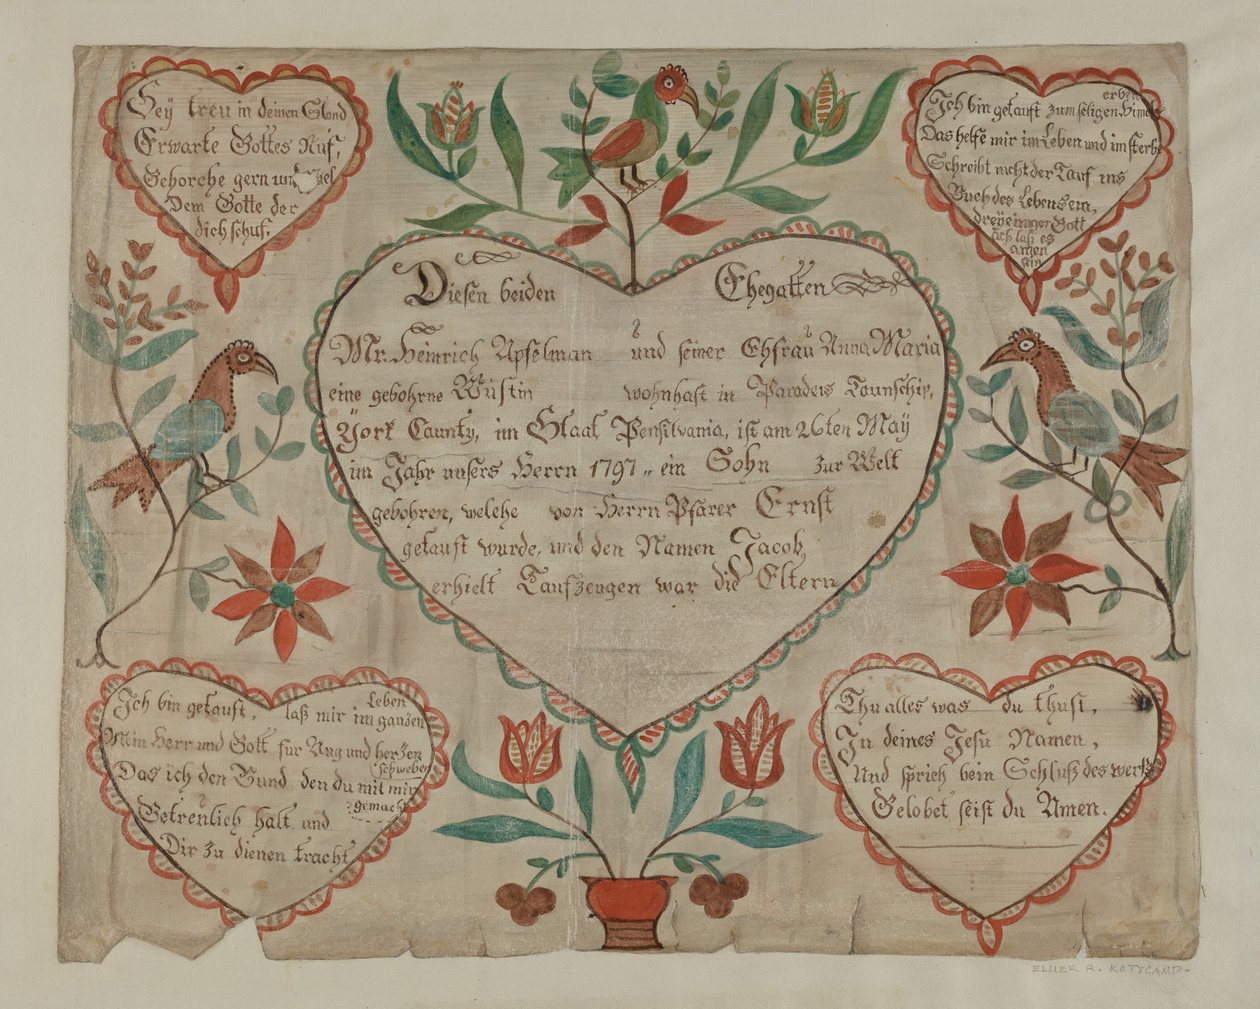 Seÿ treu in deinen Stand
Erwarte Gottes Ruf,
Gehorche gern und
Dem Gotte der
dich schuf.
erben
Ich bin getauft zum seligen Himels
Das helfe mir im Leben und im sterbe
Schreibt nicht der Tauf ins
Buch des Lebens ein,
dreÿeiniger Gott
ach laß es
sein
Diesen beiden Ehegatten
Mr. Heinrich Apselman und seiner Ehfrau Anna Maria
eine gebohrne Wüstin wohnhaft in Paradeis Taunschip,
Ÿork Caunty, im Staat Pensilvania, ist am 26ten Maÿ
im Jahr unsers Herrn 1797 „ ein Sohn zur Welt
gebohren, welche von Herrn Pfarer Ernst
getauft wurde, und den Namen Jacob,
erhielt Taufzeugen war die Eltern
Ich bin getauft, laß mir im ganzen Leben
Mein Herr und Gott für Aug und herzen
schweben
Das ich den Bund den du mit mir
gemacht
Getreulich halt und
Dir zu dienen tracht
Thu alles was du thust,
In deines Jesu Namen,
Und sprich beim Schluß des werks
Gelobet seist du Amen.
ELMER R. KOTTCAMP-